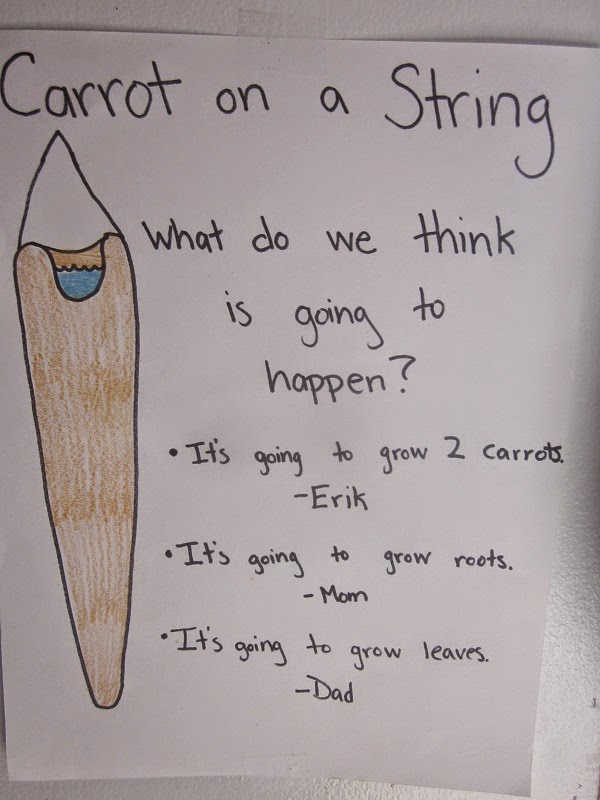 Carrot on a String
What do we think
is going to
happen?
• It's going to grow 2 carrots.
-Erik
• It's going to grow roots.
-Mom
• It's going to grow leaves.
-Dad